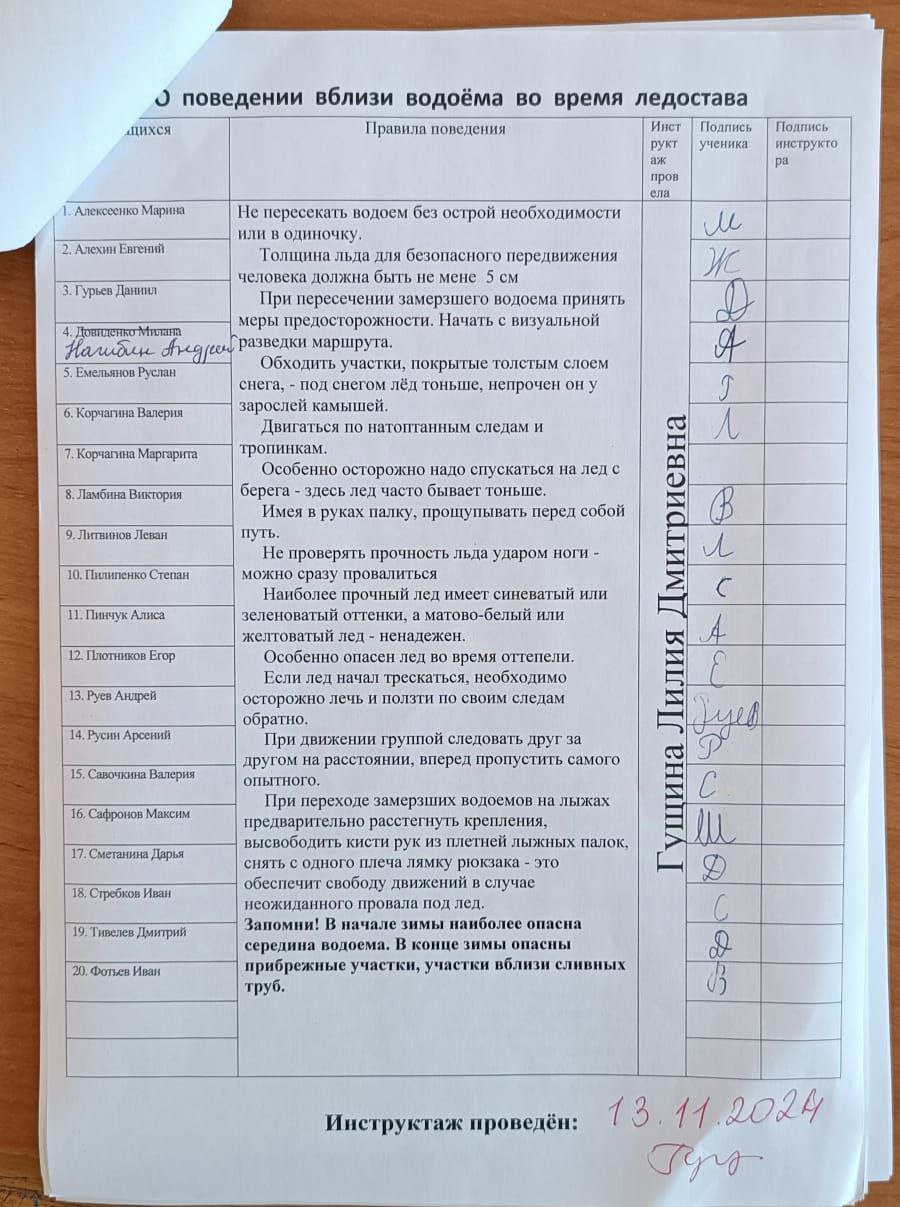 О поведении вблизи водоёма во время ледостава
щихся
Правила поведения
Инст
рукт
аж
пров
ела
Подпись
ученика
Подпись
инструкто
ра
1. Алексеенко Марина
2. Алехин Евгений
3. Гурьев Даниил
4. Довиденко Милана
Нагибин Андрей
5. Емельянов Руслан
6. Корчагина Валерия
7. Корчагина Маргарита
8. Ламбина Виктория
9. Литвинов Леван
10. Пилипенко Степан
11. Пинчук Алиса
12. Плотников Егор
13. Руев Андрей
14. Русин Арсений
15. Савочкина Валерия
16. Сафронов Максим
17. Сметанина Дарья
18. Стребков Иван
19. Тивелев Дмитрий
20. Фотьев Иван
Не пересекать водоем без острой необходимости
или в одиночку.
Толщина льда для безопасного передвижения
человека должна быть не мене 5 см
При пересечении замерзшего водоема принять
меры предосторожности. Начать с визуальной
разведки маршрута.
Обходить участки, покрытые толстым слоем
снега, - под снегом лёд тоньше, непрочен он у
зарослей камышей.
Двигаться по натоптанным следам и
тропинкам.
Особенно осторожно надо спускаться на лед с
берега - здесь лед часто бывает тоньше.
Имея в руках палку, прощупывать перед собой
путь.
Не проверять прочность льда ударом ноги -
можно сразу провалиться
Наиболее прочный лед имеет синеватый или
зеленоватый оттенки, а матово-белый или
желтоватый лед - ненадежен.
Особенно опасен лед во время оттепели.
Если лед начал трескаться, необходимо
осторожно лечь и ползти по своим следам
обратно.
При движении группой следовать друг за
другом на расстоянии, вперед пропустить самого
опытного.
При переходе замерзших водоемов на лыжах
предварительно расстегнуть крепления,
высвободить кисти рук из плетней лыжных палок,
снять с одного плеча лямку рюкзака - это
обеспечит свободу движений в случае
неожиданного провала под лед.
Запомни! В начале зимы наиболее опасна
середина водоема. В конце зимы опасны
прибрежные участки, участки вблизи сливных
труб.
Гущина Лилия Дмитриевна
М
Ж
Д
А
Л
В
Л
С
А
Е
Руев
Р
С
Д
С
Д
В
Инструктаж проведён: 13.11.2024